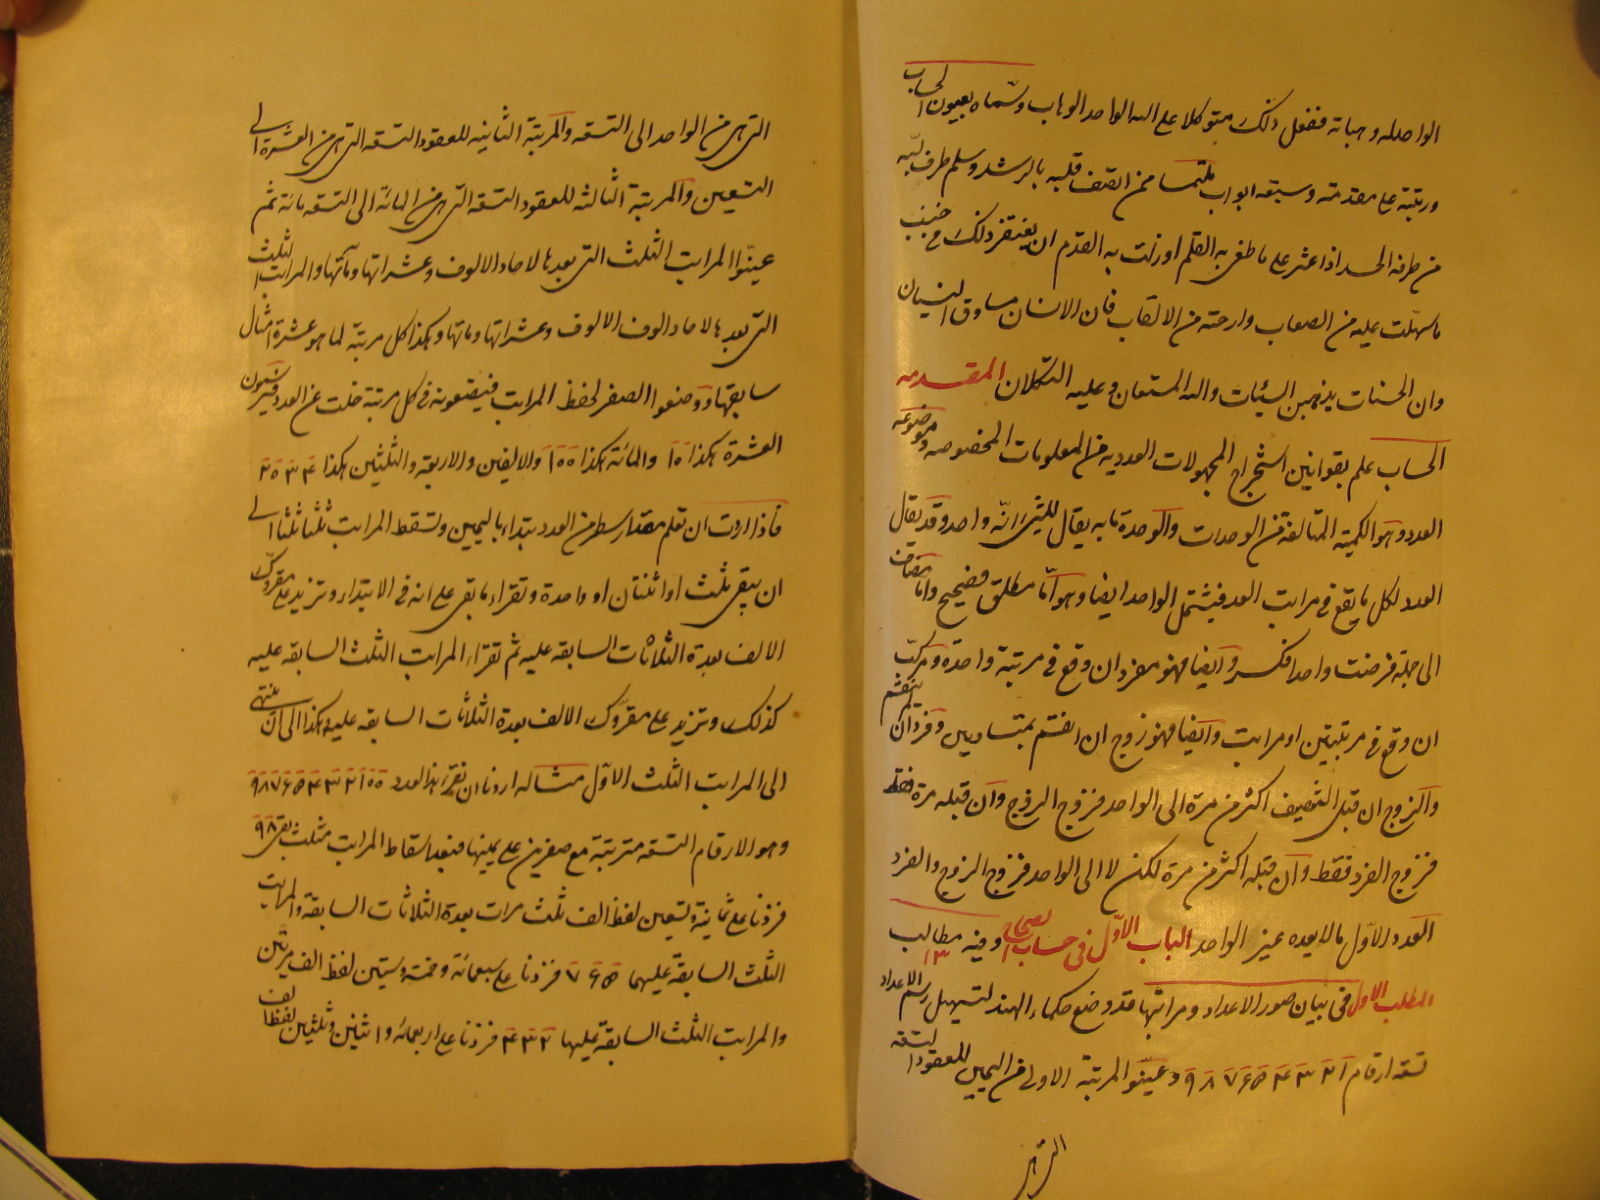 الواصله وهباته ففعل ذلك متوكلا على الله الواحد الوهاب وسماه بعيون الحساب
ورتبته على مقدمته وسبعه ابواب ملتمسا ممن اتصف قلبه بالرشد وسلم طرف لبه
من طرفه الحسد اذا عثر على ما طغى به القلم او زلت به القدم ان يغتفر ذلك في جنب
ما سهلت عليه من الصعاب وارحته من الالتعاب فان الانسان مساوق النسيان
وان الحسنات يذهبن السيئات والله المستعان وعليه التكلان المقدمه
الحساب علم بقوانين استخراج المجهولات العدديه من المعلومات المخصوصه وموضوعه
العدد وهو الكميته المتالفة من الوحدات والوحدة ما به يقال للشئ انه واحد وقد يقال
العدد لكل ما يقع في مراتب العد فيشتمل الواحد ايضا وهو اما مطلق فصحيح واما مضاف
الى جملة فرضت واحدا فكسر وايضا فهو مفرد ان وقع في مرتبة واحدة ومركب
ان وقع في مرتبتين او مراتب وايضا فهو زوج ان انقسم بمتساويين وفرد ان لم ينقسم
والزوج ان قبل التنصيف اكثر من مرة الى الواحد فزوج الزوج وان قبله مرة فقط
فزوج الفرد فقط وان قبله اكثر من مرة لكن لا الى الواحد فزوج الزوج والفرد
العدد الاول ما لا يعده غير الواحد الباب الاول في حساب الصحاح وفيه مطالب ١٣
المطلب الاول في بيان صور الاعداد ومراتبها قد وضع حكماء الهند لتسهيل رسم الاعداد
تسعه ارقام ١ ٢ ٣ ٤ ٥ ٦ ٧ ٨ ٩ وعينوا المرتبة الاولى من اليمين للعقود التسعه
التى هى
التى هى من الواحد الى التسعه والمرتبة الثانيه للعقود التسعه التى هى من العشرة الى
التسعين والمرتبة الثالثه للعقود التسعه التى هى من المائة الى التسعه مائة ثم
عينوا المراتب الثلث التى بعدها لاحاد الالوف وعشراتها ومآتها والمراتب الثلث
التى بعدها لاحاد الوف الالوف وعشراتها وماتها وهكذا كل مرتبة لما هو عشرة امثال
سابقها ووضعوا الصفر لحفظ المراتب فيضعونه في كل مرتبة خلت عن العدد فيرسمون
العشرة هكذا ١٠ والمائة هكذا ١٠٠ والالفين والاربعة والثلثين هكذا ٢٠٣٤
فاذا اردت ان تعلم مقدار سطر من العدد بتداء باليمين وتسقط المراتب ثلثا ثلثا الى
ان يبقى ثلث او اثنتان او واحدة وتقراء ما بقى على انه في الابتداء وتزيد على مقروك
الالف بعدة الثلاثات السابقه عليه ثم تقراء المراتب الثلث السابقه عليه
كذلك وتزيد على مقروك الالف بعدة الثلاثات السابقه عليه وهكذا الى ان ينتهى
الى المراتب الثلث الاول مثاله اردنا ان نقراء هذا العدد ٩٨٧٦٥٤٣٢١٠٠
وهو الارقام التسعه مترتبة مع صفرين على يمينها فبعد اسقاط المراتب مثلث بقى ٩٨
فزدنا على ثمانية وتسعين لفظ الف ثلث مرات بعدة الثلاثات السابقة والمراتب
الثلث السابقة عليهما ٧٦٥ فزدنا على سبعمائة وخمسة وستين لفظ الف مرتين
والمراتب الثلث السابقة عليها ٤٣٢ فزدنا على اربعمائه واثنين وثلثين لفظ الف